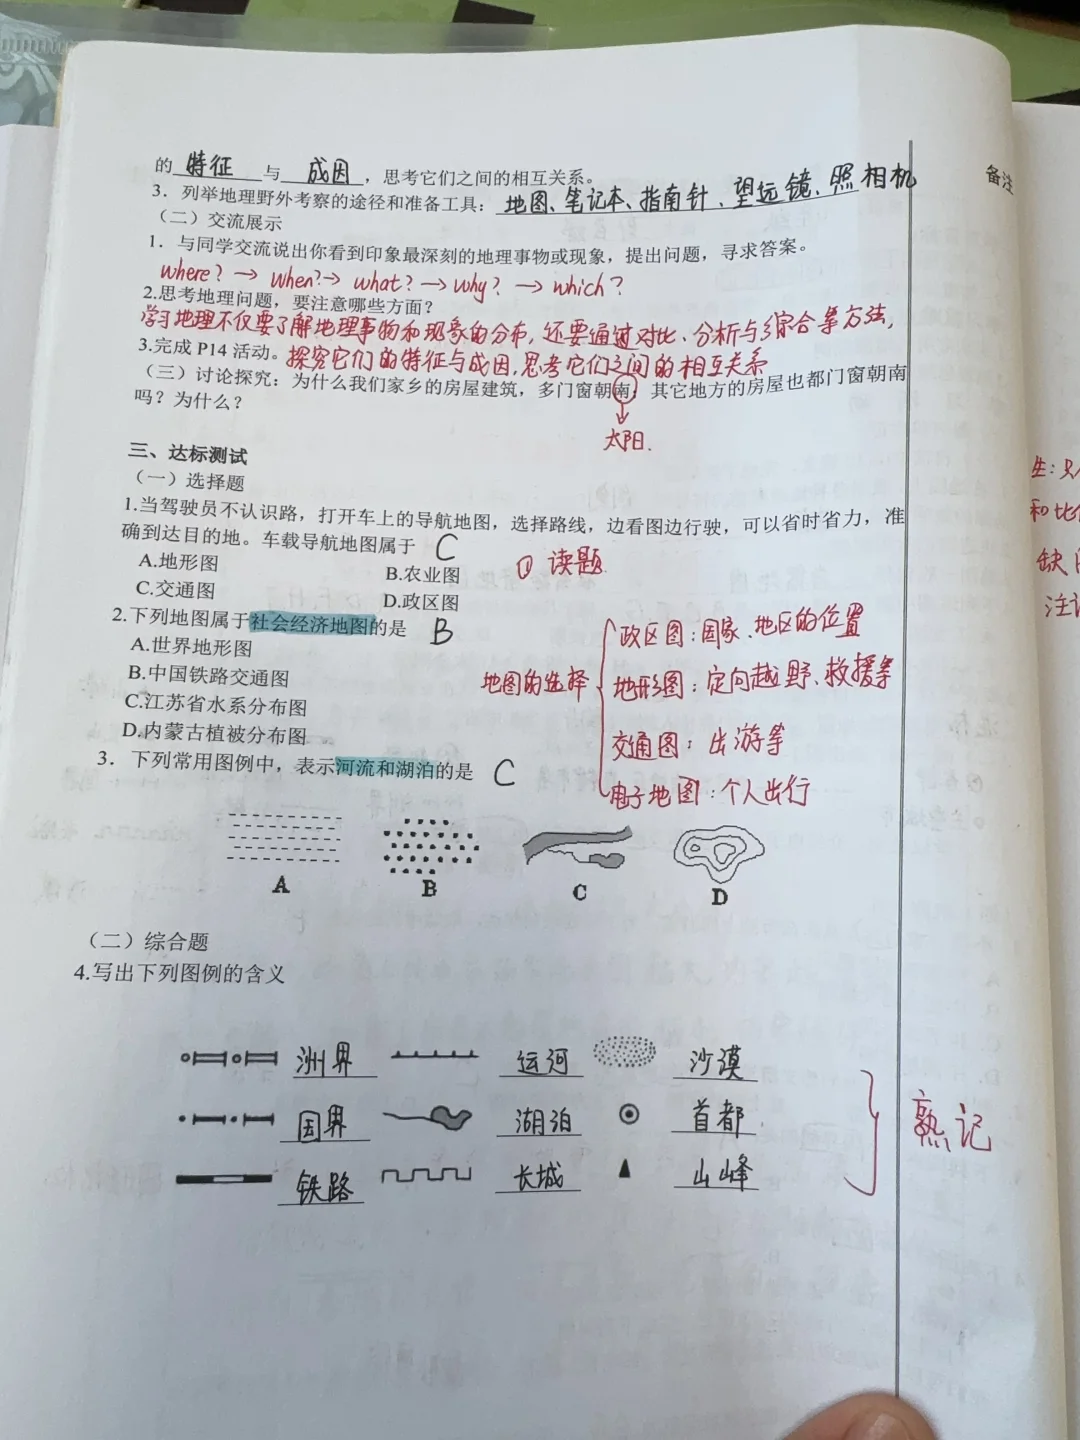 的 特征 与 成因 ，思考它们之间的相互关系。
备注
3．列举地理野外考察的途径和准备工具：地图、笔记本、指南针、望远镜、照相机
（二）交流展示
1．与同学交流说出你看到印象最深刻的地理事物或现象，提出问题，寻求答案。
where? → when? → what? → why? → which?
2.思考地理问题，要注意哪些方面？
学习地理不仅要了解地理事物和现象的分布，还要通过对比、分析与综合等方法，
3.完成 P14 活动。探究它们的特征与成因，思考它们之间的相互关系
（三）讨论探究：为什么我们家乡的房屋建筑，多门窗朝南；其它地方的房屋也都门窗朝南
吗？为什么？
太阳.
三、达标测试
（一）选择题
1.当驾驶员不认识路，打开车上的导航地图，选择路线，边看图边行驶，可以省时省力，准
确到达目的地。车载导航地图属于 C
① 读题.
A.地形图 B.农业图
C.交通图 D.政区图
2.下列地图属于社会经济地图的是 B
A.世界地形图
B.中国铁路交通图
C.江苏省水系分布图
D.内蒙古植被分布图
地图的选择
政区图：国家、地区的位置
地形图：定向越野、救援等
交通图：出游等
电子地图：个人出行
3．下列常用图例中，表示河流和湖泊的是 C
A B C D
（二）综合题
4.写出下列图例的含义
洲界 运河 沙漠
国界 湖泊 首都
铁路 长城 山峰
熟记
和比
缺